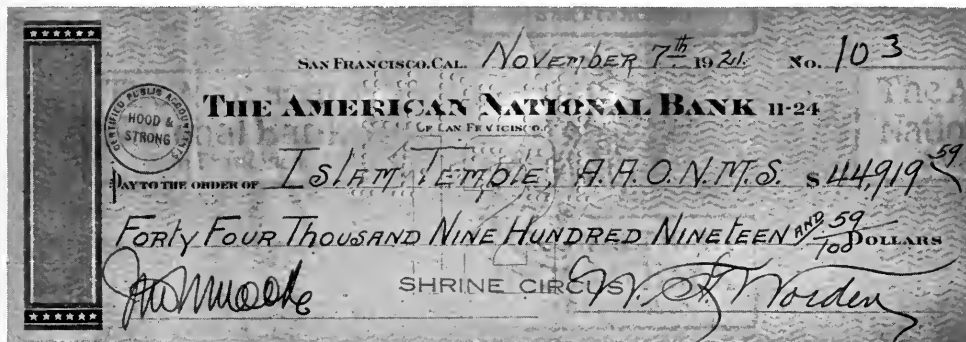 SAN FRANCISCO, CAL. NOVEMBER 7th 1921. No. 103
THE AMERICAN NATIONAL BANK 11-24
OF SAN FRANCISCO
CERTIFIED PUBLIC ACCOUNTANTS
HOOD &
STRONG
PAY TO THE ORDER OF Islam Temple, A.A.O.N.M.S. $44,919 59
FORTY FOUR THOUSAND NINE HUNDRED NINETEEN AND 59/100 DOLLARS
SHRINE CIRCUS Worden